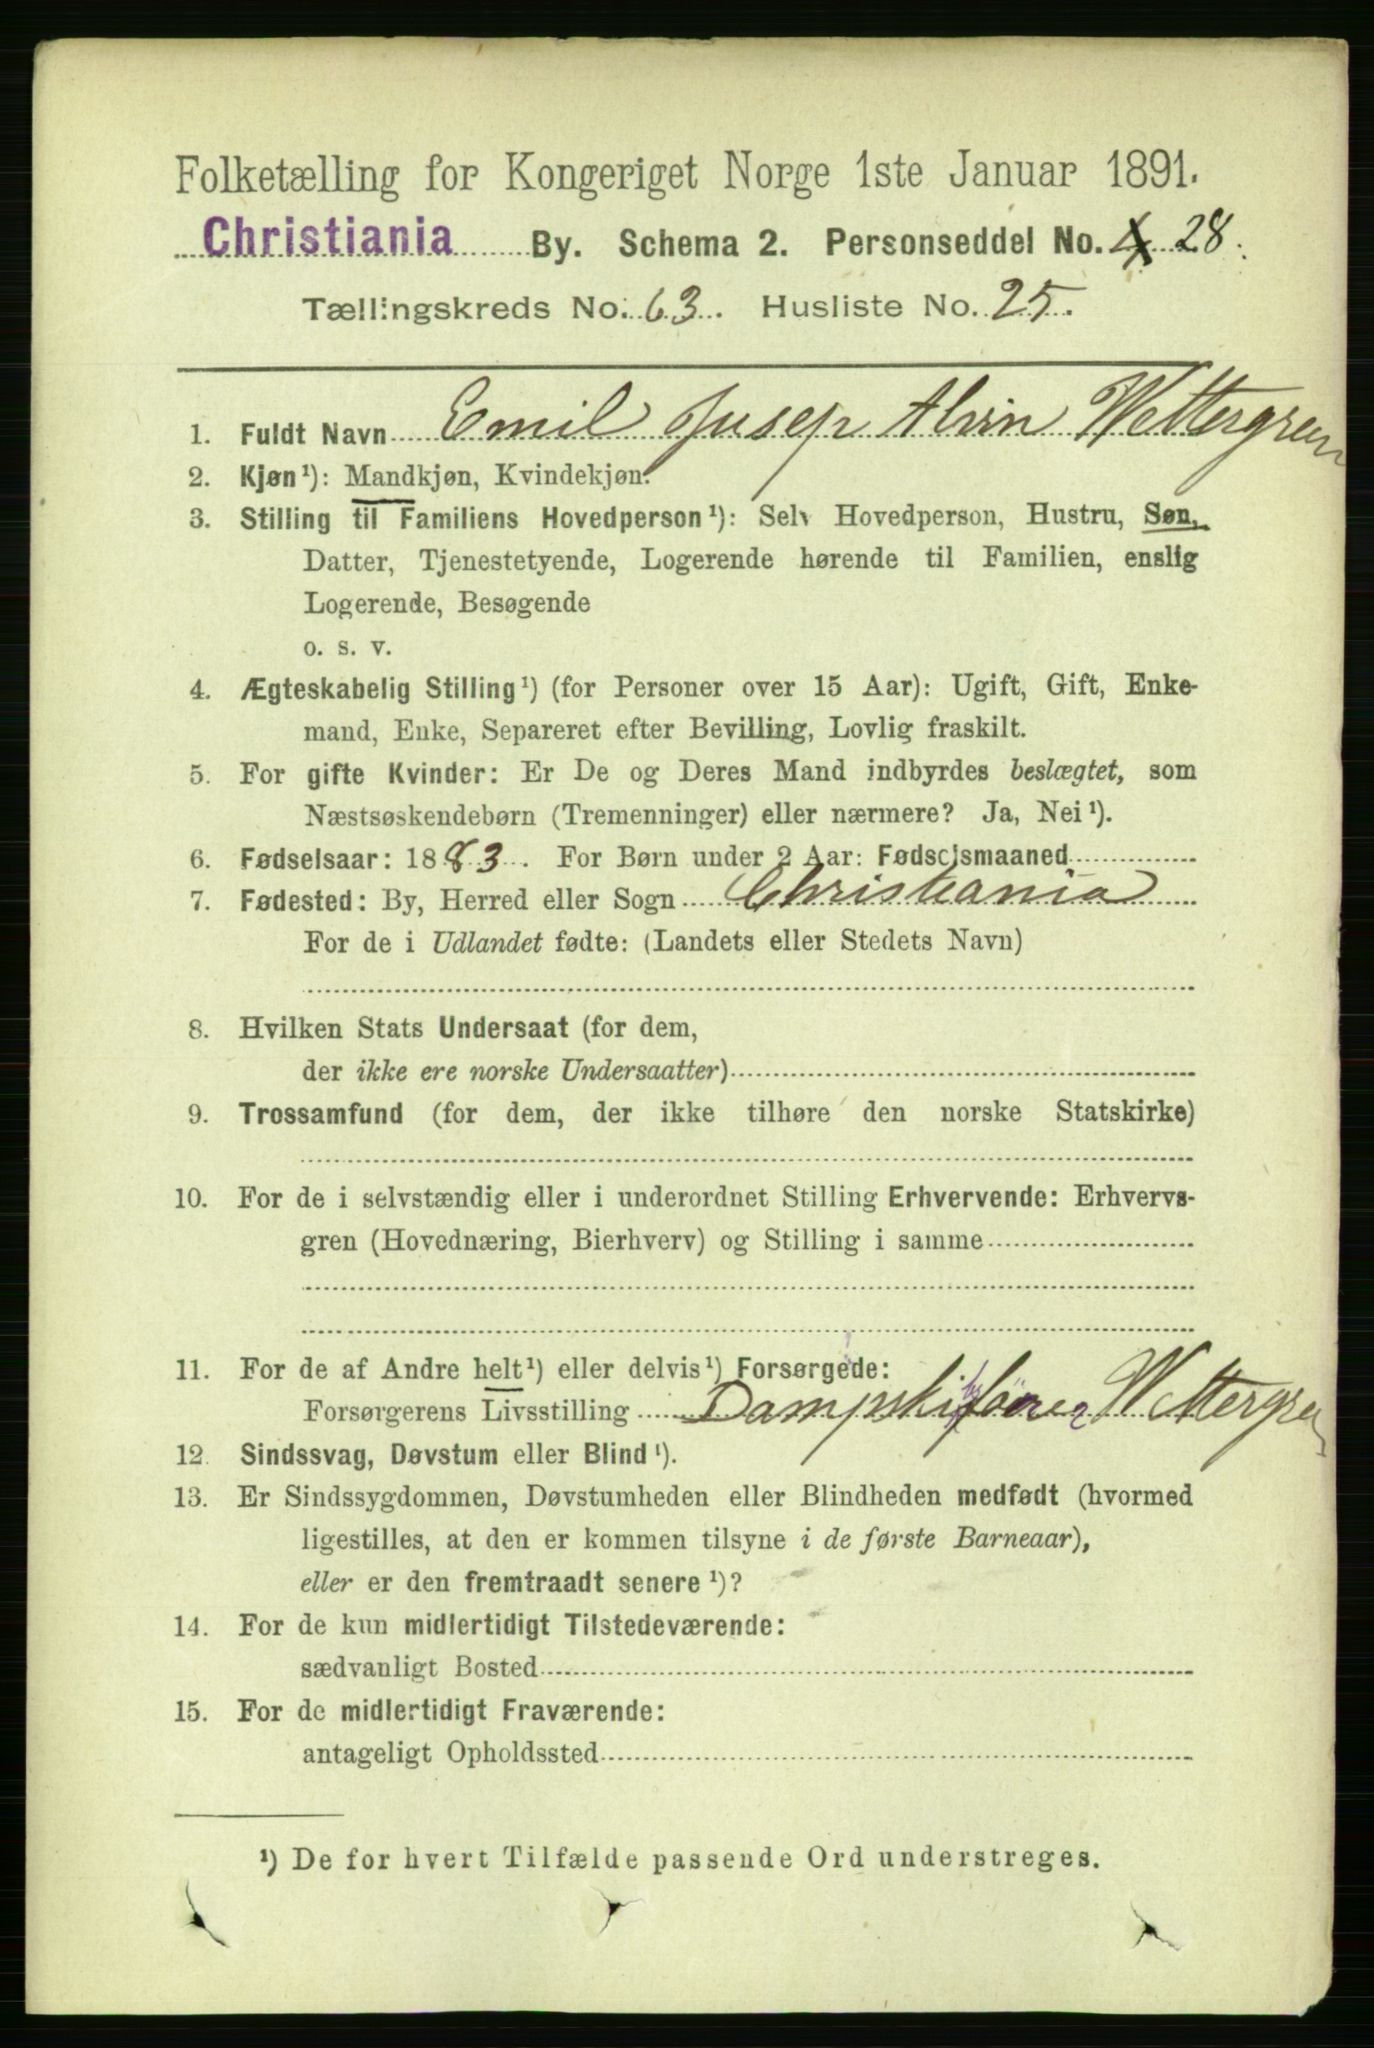 Folketælling for Kongeriget Norge 1ste Januar 1891.
Christiania By. Schema 2. Personseddel No. 4 28.
Tællingskreds No. 63. Husliste No. 25.
1. Fuldt Navn Emil Jusep Alvin Wettergren
2. Kjøn¹): Mandkjøn, Kvindekjøn.
3. Stilling til Familiens Hovedperson¹): Selv Hovedperson, Hustru, Søn,
Datter, Tjenestetyende, Logerende hørende til Familien, enslig
Logerende, Besøgende
o. s. v.
4. Ægteskabelig Stilling¹) (for Personer over 15 Aar): Ugift, Gift, Enke-
mand, Enke, Separeret efter Bevilling, Lovlig fraskilt.
5. For gifte Kvinder: Er De og Deres Mand indbyrdes beslægtet, som
Næstsøskendebørn (Tremenninger) eller nærmere? Ja, Nei¹).
6. Fødselsaar: 1883. For Børn under 2 Aar: Fødselsmaaned
7. Fødested: By, Herred eller Sogn Christiania
For de i Udlandet fødte: (Landets eller Stedets Navn)
8. Hvilken Stats Undersaat (for dem,
der ikke ere norske Undersaatter)
9. Trossamfund (for dem, der ikke tilhøre den norske Statskirke)
10. For de i selvstændig eller i underordnet Stilling Erhvervende: Erhvervs-
gren (Hovednæring, Bierhverv) og Stilling i samme
11. For de af Andre helt¹) eller delvis¹) Forsørgede:
Forsørgerens Livsstilling Dampskibsfører Wettergren
12. Sindssvag, Døvstum eller Blind¹).
13. Er Sindssygdommen, Døvstumheden eller Blindheden medfødt (hvormed
ligestilles, at den er kommen tilsyne i de første Barneaar),
eller er den fremtraadt senere¹)?
14. For de kun midlertidigt Tilstedeværende:
sædvanligt Bosted
15. For de midlertidigt Fraværende:
antageligt Opholdssted
¹) De for hvert Tilfælde passende Ord understreges.